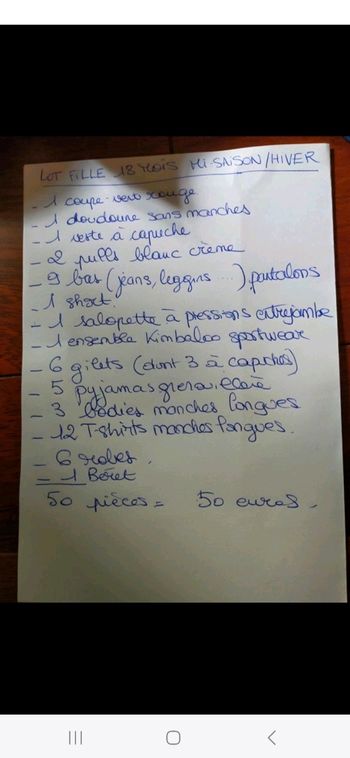 LOT FILLE 18 MOIS MI-SAISON/HIVER
- 1 coupe-vent rouge
- 1 doudoune sans manches
- 1 veste à capuche
- 2 pulls blanc crème
- 9 bas (jeans, leggins ...) pantalons
- 1 short.
- 1 salopette à pressions entrejambe
- 1 ensemble Kimbaloo sportwear
- 6 gilets (dont 3 à capuches)
- 5 pyjamas
- 3 bodies manches longues
- 12 T-shirts manches longues.
- 6 robes.
- 1 Béret
50 pièces = 50 euros.